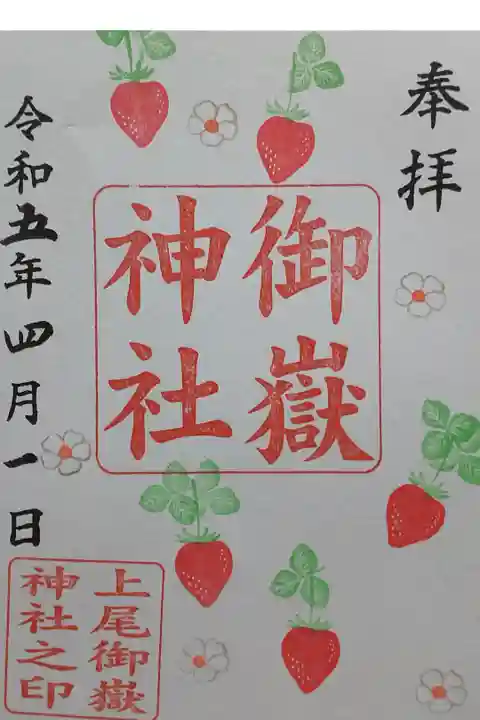 奉拝
御嶽
神社
令和五年四月一日
上尾御嶽
神社之印